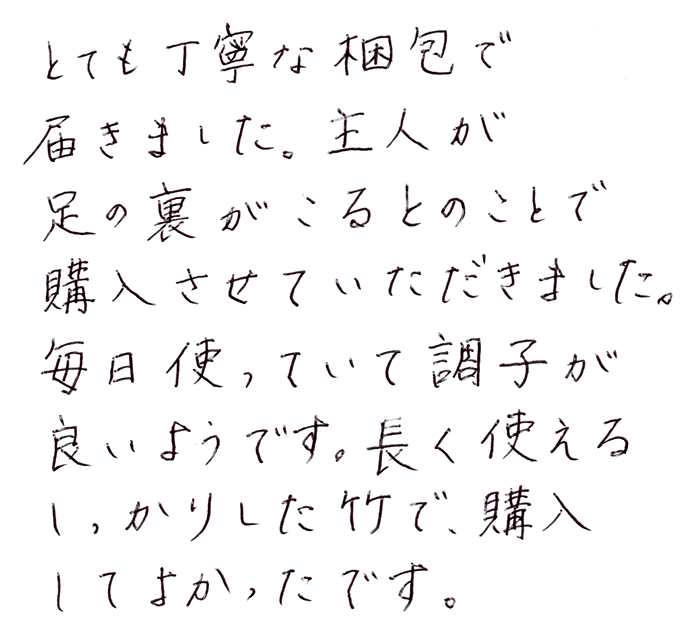 とても丁寧な梱包で
届きました。主人が
足の裏がこるとのことで
購入させていただきました。
毎日使っていて調子が
良いようです。長く使える
しっかりした竹で、購入
してよかったです。